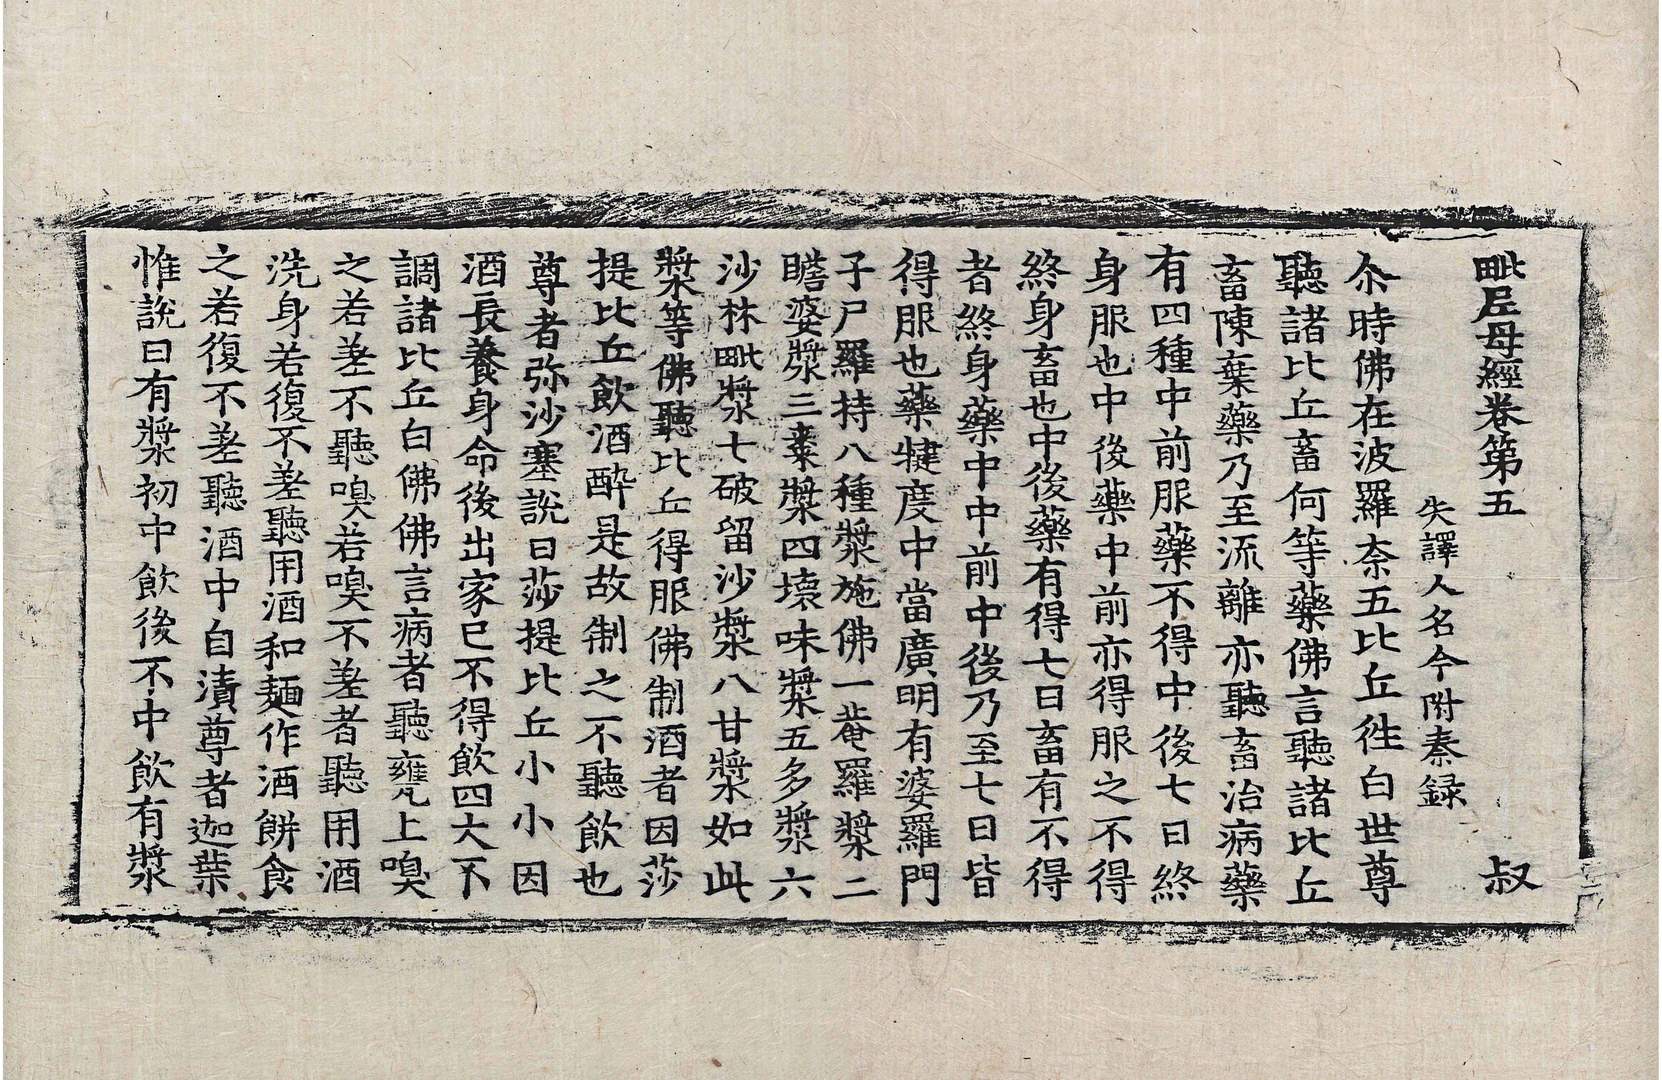 毗尼母經卷第五 叔
失譯人名今附秦録
尒時佛在波羅柰五比丘徃白世尊
聽諸比丘畜何等藥佛言聽諸比丘
畜陳棄藥乃至流離亦聽畜治病藥
有四種中前服藥不得中後七日終
身服也中後藥中前亦得服之不得
終身畜也中後藥有得七日畜有不得
者終身藥中中前中後乃至七日皆
得服也藥犍度中當廣明有婆羅門
子尸羅持八種漿施佛一菴羅漿二
瞻婆漿三棗漿四壞味漿五多漿六
沙林毗漿七破留沙漿八甘漿如此
漿等佛聽比丘得服佛制酒者因莎
提比丘飲酒醉是故制之不聽飲也
尊者弥沙塞說曰莎提比丘小小因
酒長養身命後出家已不得飲四大不
調諸比丘白佛佛言病者聽甕上嗅
之若差不聽嗅若嗅不差者聽用酒
洗身若復不差聽用酒和麺作酒餅食
之若復不差聽酒中自漬尊者迦葉
惟說曰有漿初中飲後不中飲有漿